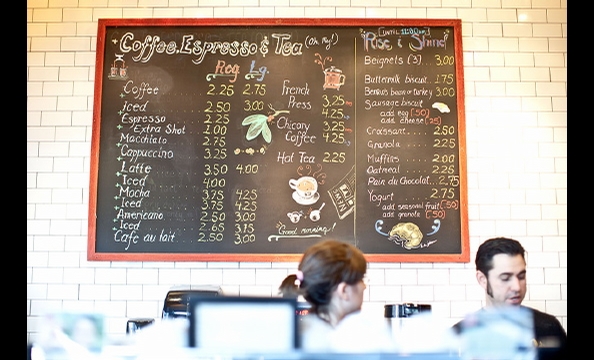 Coffee, Espresso & Tea (Oh, My!)
Reg. Lg.
Coffee 2.25 2.75
Iced 2.50 3.00
Espresso 2.25
Extra Shot 1.00
Macchiato 2.75
Cappuccino 3.25
Latte 3.50 4.00
Iced 4.00
Mocha 3.75 4.25
Iced 3.75 4.25
Americano 2.50 3.00
Iced 2.65 3.15
Cafe au lait 2.50 3.00
French
Press 3.25
4.25
Chicory 3.25
Coffee 4.25
Hot Tea 2.25
Good morning!
[UNTIL 11:00am]
Rise & Shine!
Beignets (3). 3.00
Buttermilk biscuit 1.75
bacon or turkey 3.00
Sausage biscuit
add egg (.50)
add cheese (.25)
Croissant 2.50
Granola 2.25
Muffins 2.00
Oatmeal 2.25
Pain du Chocolat 2.75
Yogurt 2.75
add seasonal fruit (.50)
add granola (.50)